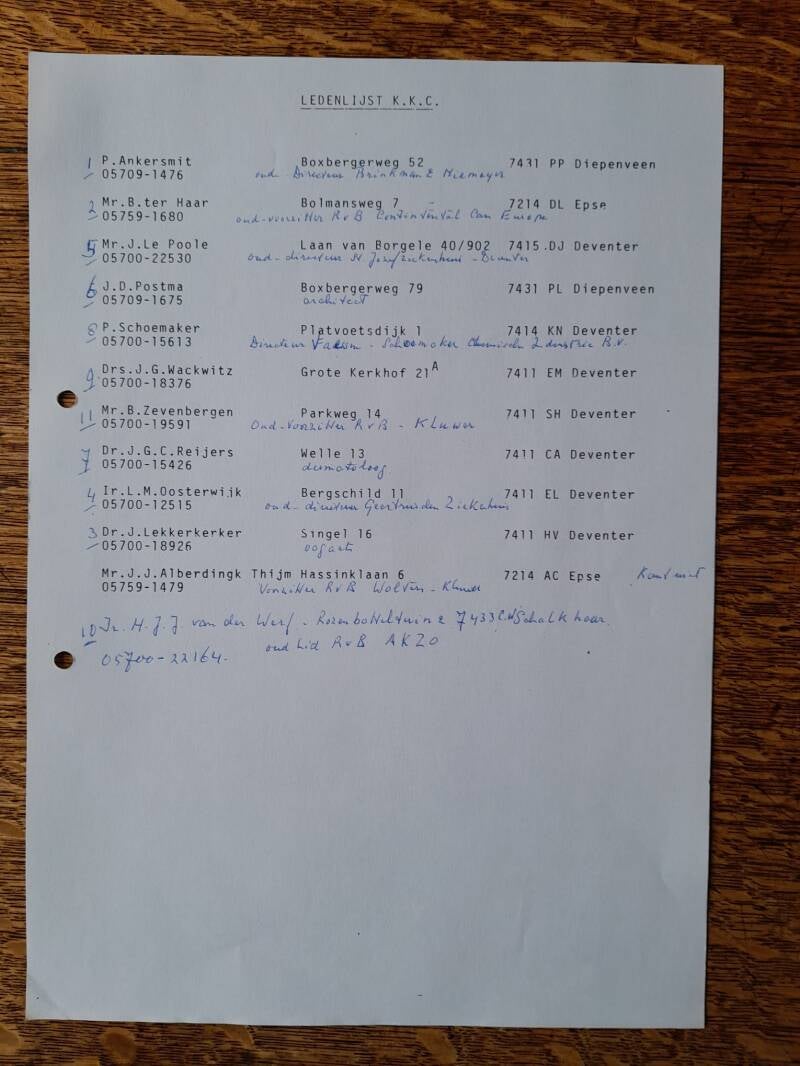 LEDENLIJST K.K.C.
1 P.Ankersmit Boxbergerweg 52 7431 PP Diepenveen
05709-1476 oud-Directeur Brinkman & Niemeyer
2 Mr.B.ter Haar Bolmansweg 7 7214 DL Epse
05759-1680 oud-voorzitter RvB Continental Can Europe
5 Mr.J.Le Poole Laan van Borgele 40/902 7415 DJ Deventer
05700-22530 oud-directeur St Jozefziekenhuis - Deventer
6 J.D.Postma Boxbergerweg 79 7431 PL Diepenveen
05709-1675 architect
8 P.Schoemaker Platvoetsdijk 1 7414 KN Deventer
05700-15613 Directeur - Schoemaker Chemische Industrie B.V.
9 Drs.J.G.Wackwitz Grote Kerkhof 21A 7411 EM Deventer
05700-18376
11 Mr.B.Zevenbergen Parkweg 14 7411 SH Deventer
05700-19591 Oud-Voorzitter RvB - Kluwer
7 Dr.J.G.C.Reijers Welle 13 7411 CA Deventer
05700-15426 dermatoloog
4 Ir.L.M.Oosterwijk Bergschild 11 7411 EL Deventer
05700-12515 oud-directeur Geertruiden Ziekenhuis
3 Dr.J.Lekkerkerker Singel 16 7411 HV Deventer
05700-18926 oogarts
Mr.J.J.Alberdingk Thijm Hassinklaan 6 7214 AC Epse Komt niet
05759-1479 Voorzitter RvB Wolters-Kluwer
10 Ir. H.J.J. van der Werf - Rozenbotteltuin 2 7433 CN Schalkhaar
05700-22164. oud lid RvB AKZO